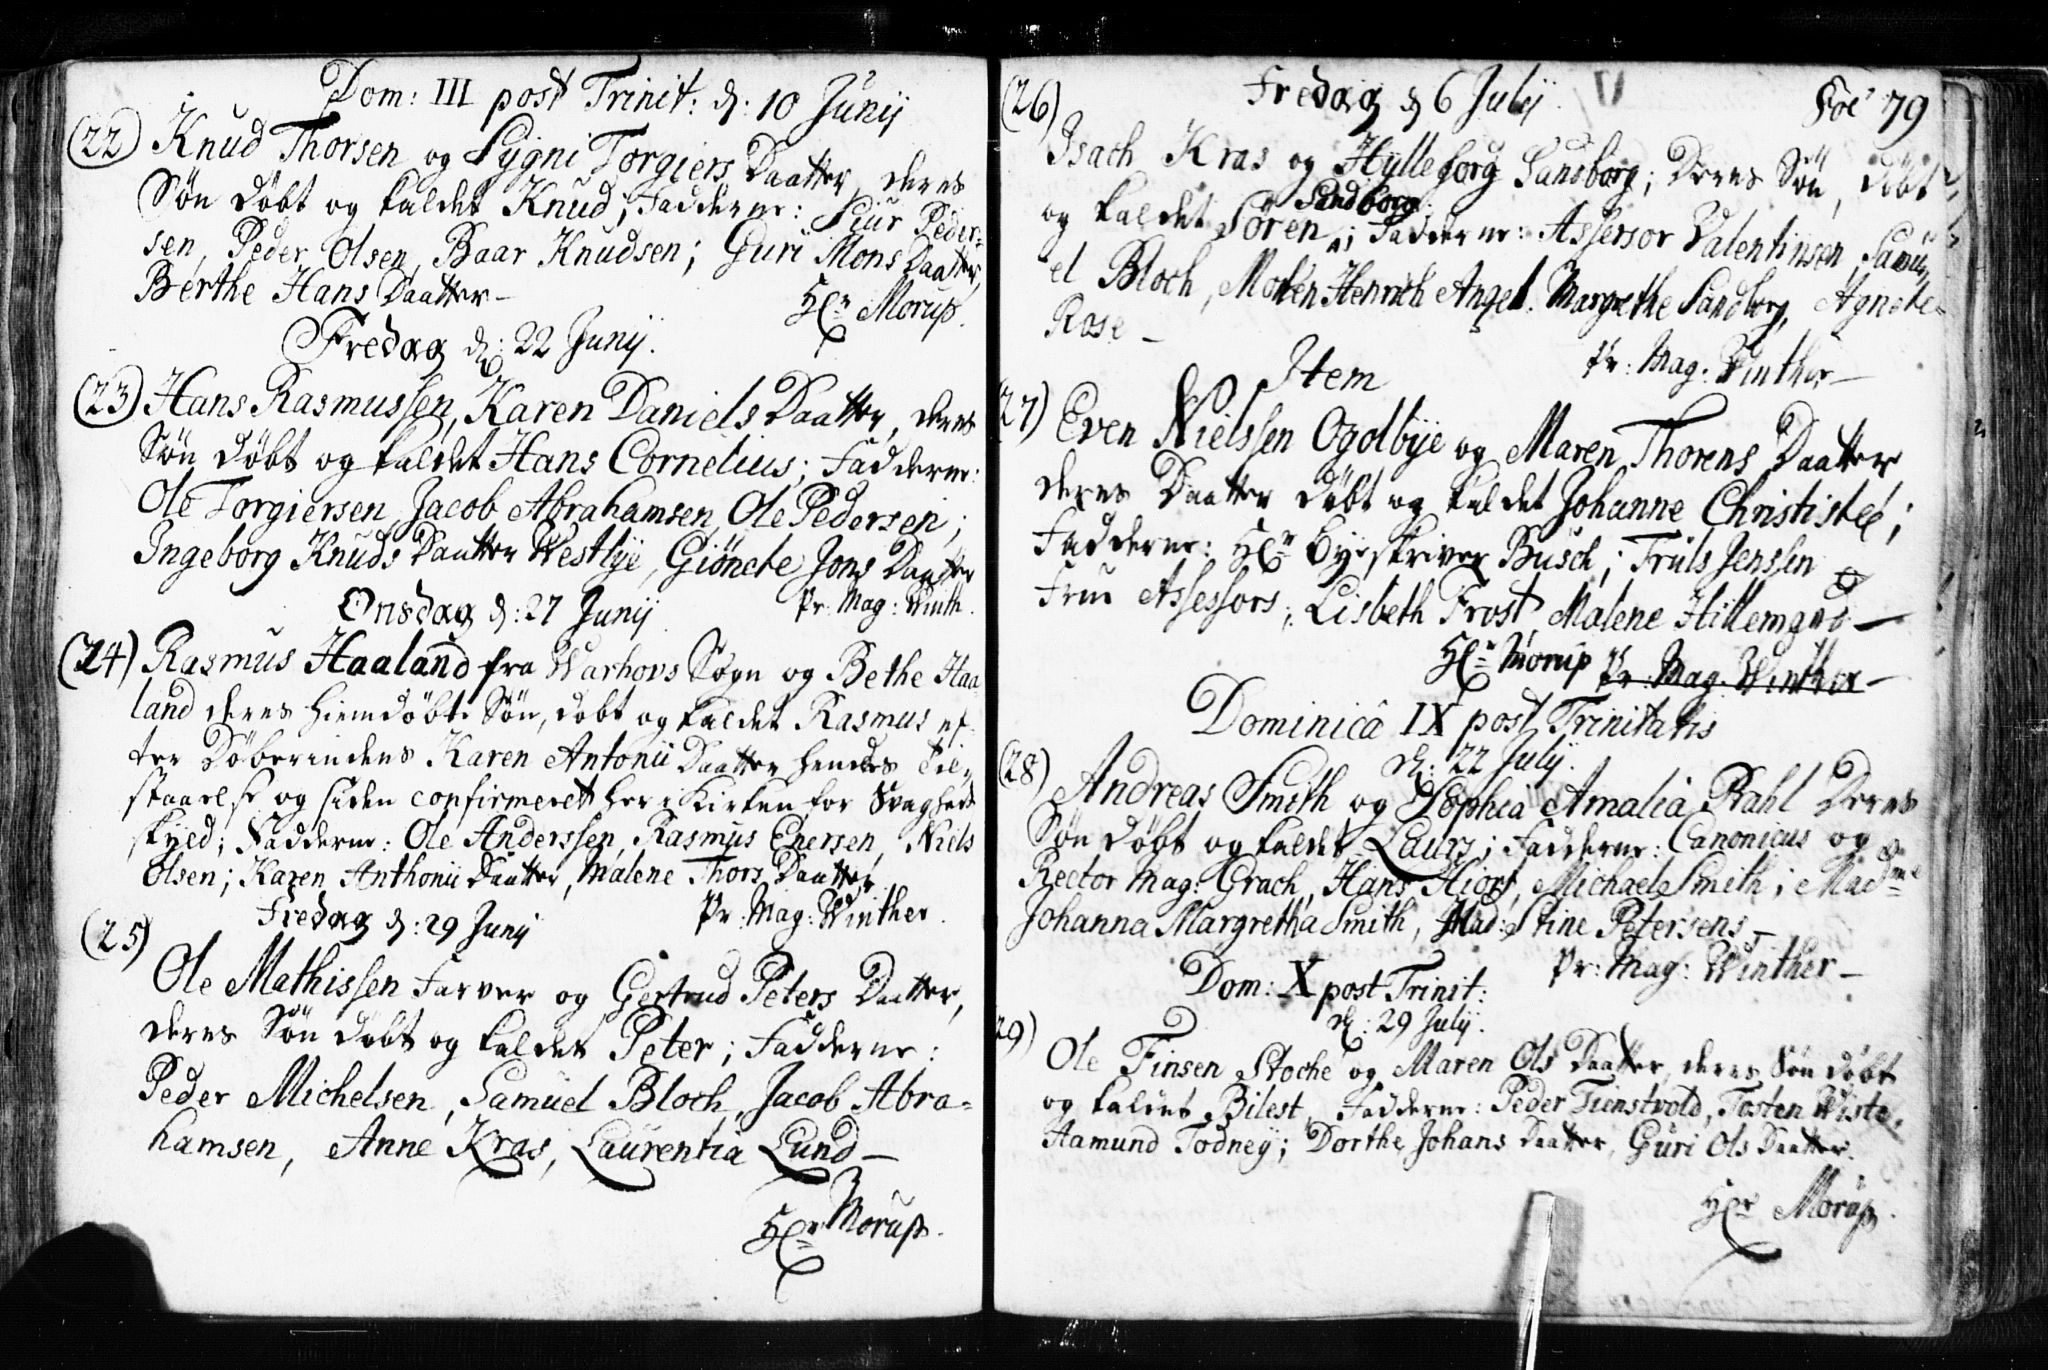 Dom: III post Trinit: d: 10 Junij
(22) Knud Thorsen og Sygni Torgiers Daatter, deres
Søn døbt og kaldet Knud; Fadderne: Siur Peder-
sen, Peder Olsen, Baar Knudsen; Guri Mons Daatter,
Berthe Hans Daatter –
Hr Morup.
Fredag d: 22 Junij.
(23) Hans Rasmussen, Karen Daniels Daatter, deres
Søn døbt og kaldet Hans Cornelius; Fadderne:
Ole Torgiersen, Jacob Abrahamsen, Ole Pedersen;
Ingeborg Knuds Daatter Westbye, Giøncte Jons Daatter
Pr: Mag: Winth.
Onsdag d: 27 Junij
(24) Rasmus Haaland fra Warhovs Sogn og Bethe Haa-
land deres hiemdøbte Søn, døbt og kaldet Rasmus ef-
ter Døberindens Karen Antonii Daatter hendes Til-
staaelse og siden confirmeret her i Kirken for Svagheds
skyld; Fadderne: Ole Anderssen, Rasmus Enersen, Niels
Olsen; Karen Anthonii Daatter, Malene Thors Daatter.
Pr: Mag: Winther.
Fredag d: 29 Junij
(25)
Ole Mathissen Farver og Gertrud Peters Daatter,
deres Søn døbt og kaldet Peter; Fadderne:
Peder Michelsen, Samuel Bloch, Jacob Abra-
hamsen, Anne Kras, Laurentia Lund –
Hr Morup.
Fredag d 6 Julij.
Fol 79
(26)
Isach Kras og Hylleborg Sandborg; Deres Søn, døbt
Sandborg
og kaldet Søren; Fadderne: Assessor Valentinsen, Samu-
el Bloch, Morten Henrich Angel. Margrethe Sandborg, Agnete
Rose –
Pr: Mag: Winther –
Item
27) Even Nielssen Ogolbye og Maren Thorens Daatter
deres Daatter døbt og kaldet Johanne Christistel;
Fadderne: Hr Byeskriver Busch; Truls Jenssen
Frue Assessors; Lisbeth Frost Malene Hillemans –
Hr Morup Pr: Mag: Winther –
Dominicâ IX post Trinitatis
d: 22 Julij.
(28)
Andreas Smith og Sophia Amalia Rahl Deres
Søn døbt og kaldet Laurs; Fadderne: Canonicus og
Rector Mag: Grach, Hans Hiort, Michael Smith; Mad
Johanna Margretha Smith, Mad: Stine Petersens –
Pr: Mag: Winther –
Dom: X post Trinit:
d: 29 Julij.
29)
Ole Finsen Stoche og Maren Ols Daatter, deres Søn døbt
og kaldet Bilest, Fadderne: Peder Tienstvold, Tosten Wiste,
Aamund Todney; Dorthe Johans Daatter, Guri Ols Daatter.
Hr Morup.